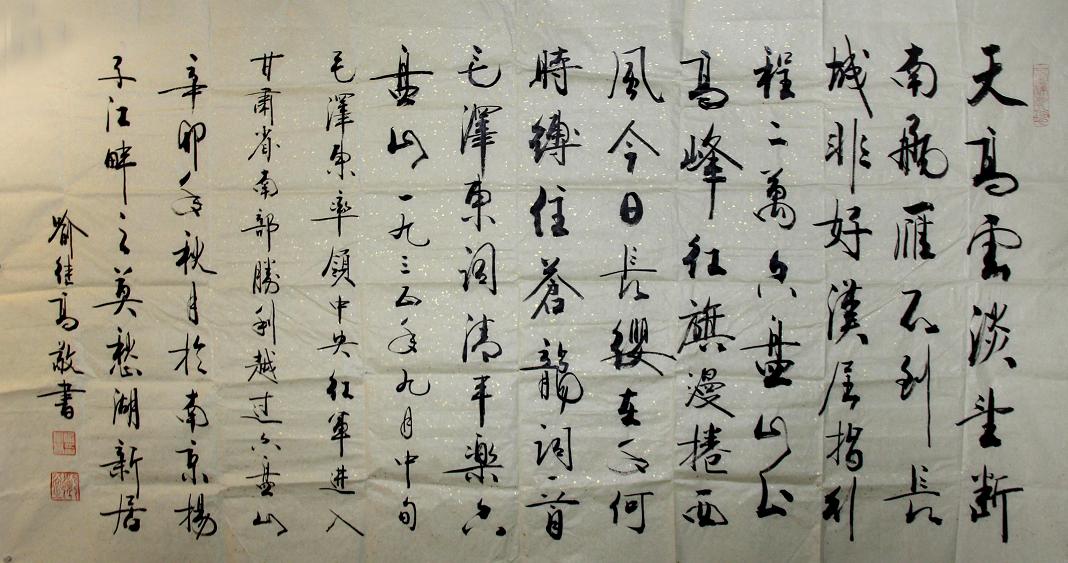 天高雲淡望斷
南飛雁不到長
城非好漢屈指行
程二萬六盤山上
高峰紅旗漫捲西
風今日長纓在手何
時縛住蒼龍詞一首
毛澤東詞清平樂六
盤山一九三五年九月中旬
毛澤東率領中央紅軍進入
甘肅省南部勝利越過六盤山
辛卯年秋月於南京揚
子江畔之莫愁湖新居
喻継高敬書